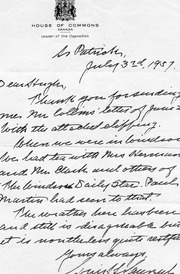 HOUSE OF COMMONS
CANADA
Leader of the Opposition
St Patrick,
July 1957
Dear Hugh,
Thank you for sending
me Mr Collins' letter of June
with the attached clipping.
When we were in Windsor
we had tea with Mrs
and Mr Clark and others of
the Windsor Daily Star. Paul
Martin had seen to that.
The weather here has been
and still is disagreeable but
it is nonetheless quite restful
Yours always,
Louis S.